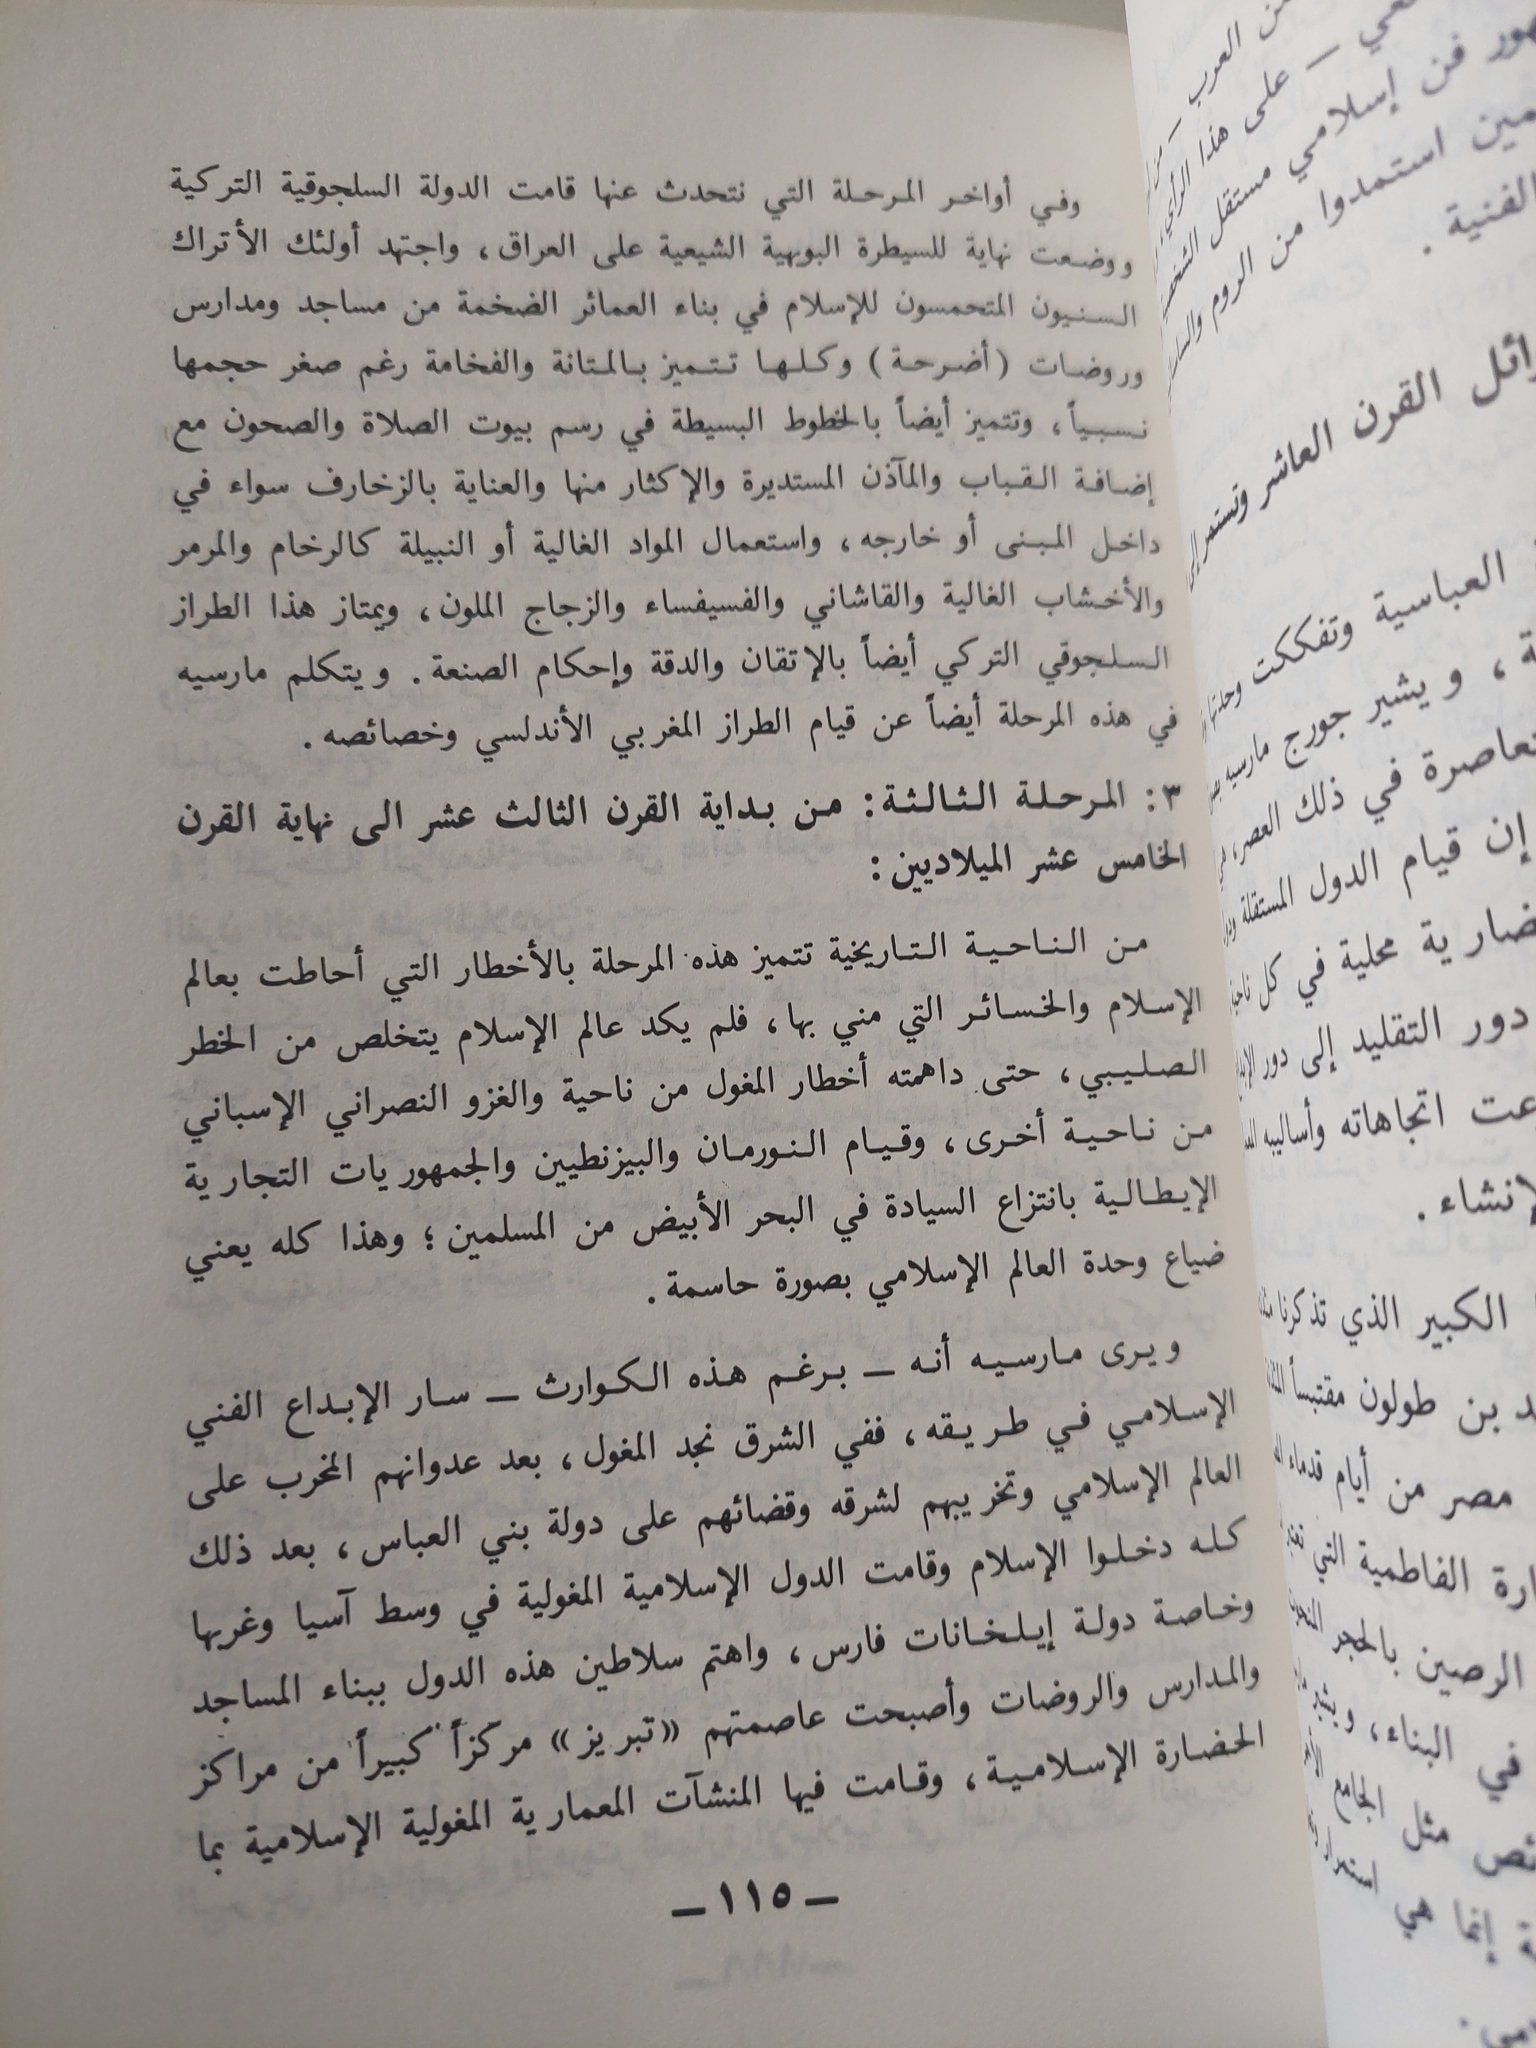 وفي أواخر المرحلة التي نتحدث عنها قامت الدولة السلجوقية التركية
ووضعت نهاية للسيطرة البويهية الشيعية على العراق، واجتهد أولئك الأتراك
السنيون المتحمسون للإسلام في بناء العمائر الضخمة من مساجد ومدارس
وروضات (أضرحة) وكلها تتميز بالمتانة والفخامة رغم صغر حجمها
نسبياً، وتتميز أيضاً بالخطوط البسيطة في رسم بيوت الصلاة والصحون مع
إضافة القباب والمآذن المستديرة والإكثار منها والعناية بالزخارف سواء في
داخل المبنى أو خارجه، واستعمال المواد الغالية أو النبيلة كالرخام والمرمر
والأخشاب الغالية والقاشاني والفسيفساء والزجاج الملون، ويمتاز هذا الطراز
السلجوقي التركي أيضاً بالإتقان والدقة وإحكام الصنعة. ويتكلم مارسيه
في هذه المرحلة أيضاً عن قيام الطراز المغربي الأندلسي وخصائصه.
٣: المرحلة الثالثة: من بداية القرن الثالث عشر الى نهاية القرن
الخامس عشر الميلاديين:
من الناحية التاريخية تتميز هذه المرحلة بالأخطار التي أحاطت بعالم
الإسلام والخسائر التي مني بها، فلم يكد عالم الإسلام يتخلص من الخطر
الصليبي، حتى داهمته أخطار المغول من ناحية والغزو النصراني الإسباني
من ناحية أخرى، وقيام النورمان والبيزنطيين والجمهوريات التجارية
الإيطالية بانتزاع السيادة في البحر الأبيض من المسلمين؛ وهذا كله يعني
ضياع وحدة العالم الإسلامي بصورة حاسمة.
ويرى مارسيه أنه — برغم هذه الكوارث — سار الإبداع الفني
الإسلامي في طريقه، ففي الشرق نجد المغول، بعد عدوانهم المخرب على
العالم الإسلامي وتخريبهم لشرقه وقضائهم على دولة بني العباس، بعد ذلك
كله دخلوا الإسلام وقامت الدول الإسلامية المغولية في وسط آسيا وغربها
وخاصة دولة إيلخانات فارس، واهتم سلاطين هذه الدول ببناء المساجد
والمدارس والروضات وأصبحت عاصمتهم «تبريز» مركزاً كبيراً من مراكز
الحضارة الإسلامية، وقامت فيها المنشآت المعمارية المغولية الإسلامية بما
— ١١٥ —
من العرب —
— على هذا الرأي،
فن إسلامي مستقل
استمدوا من الروم
الفنية.
القرن العاشر وتستمر إلى
العباسية وتفككت وحدتها
، ويشير جورج مارسيه
في ذلك العصر،
إن قيام الدول المستقلة
محلية في كل
دور التقليد إلى دور
اتجاهاته وأساليبه
الكبير الذي تذكرنا
بن طولون مقتبساً
مصر من أيام قدماء
الفاطمية التي
الرصين بالحجر
في البناء،
مثل الجامع
إنما هي استمرار